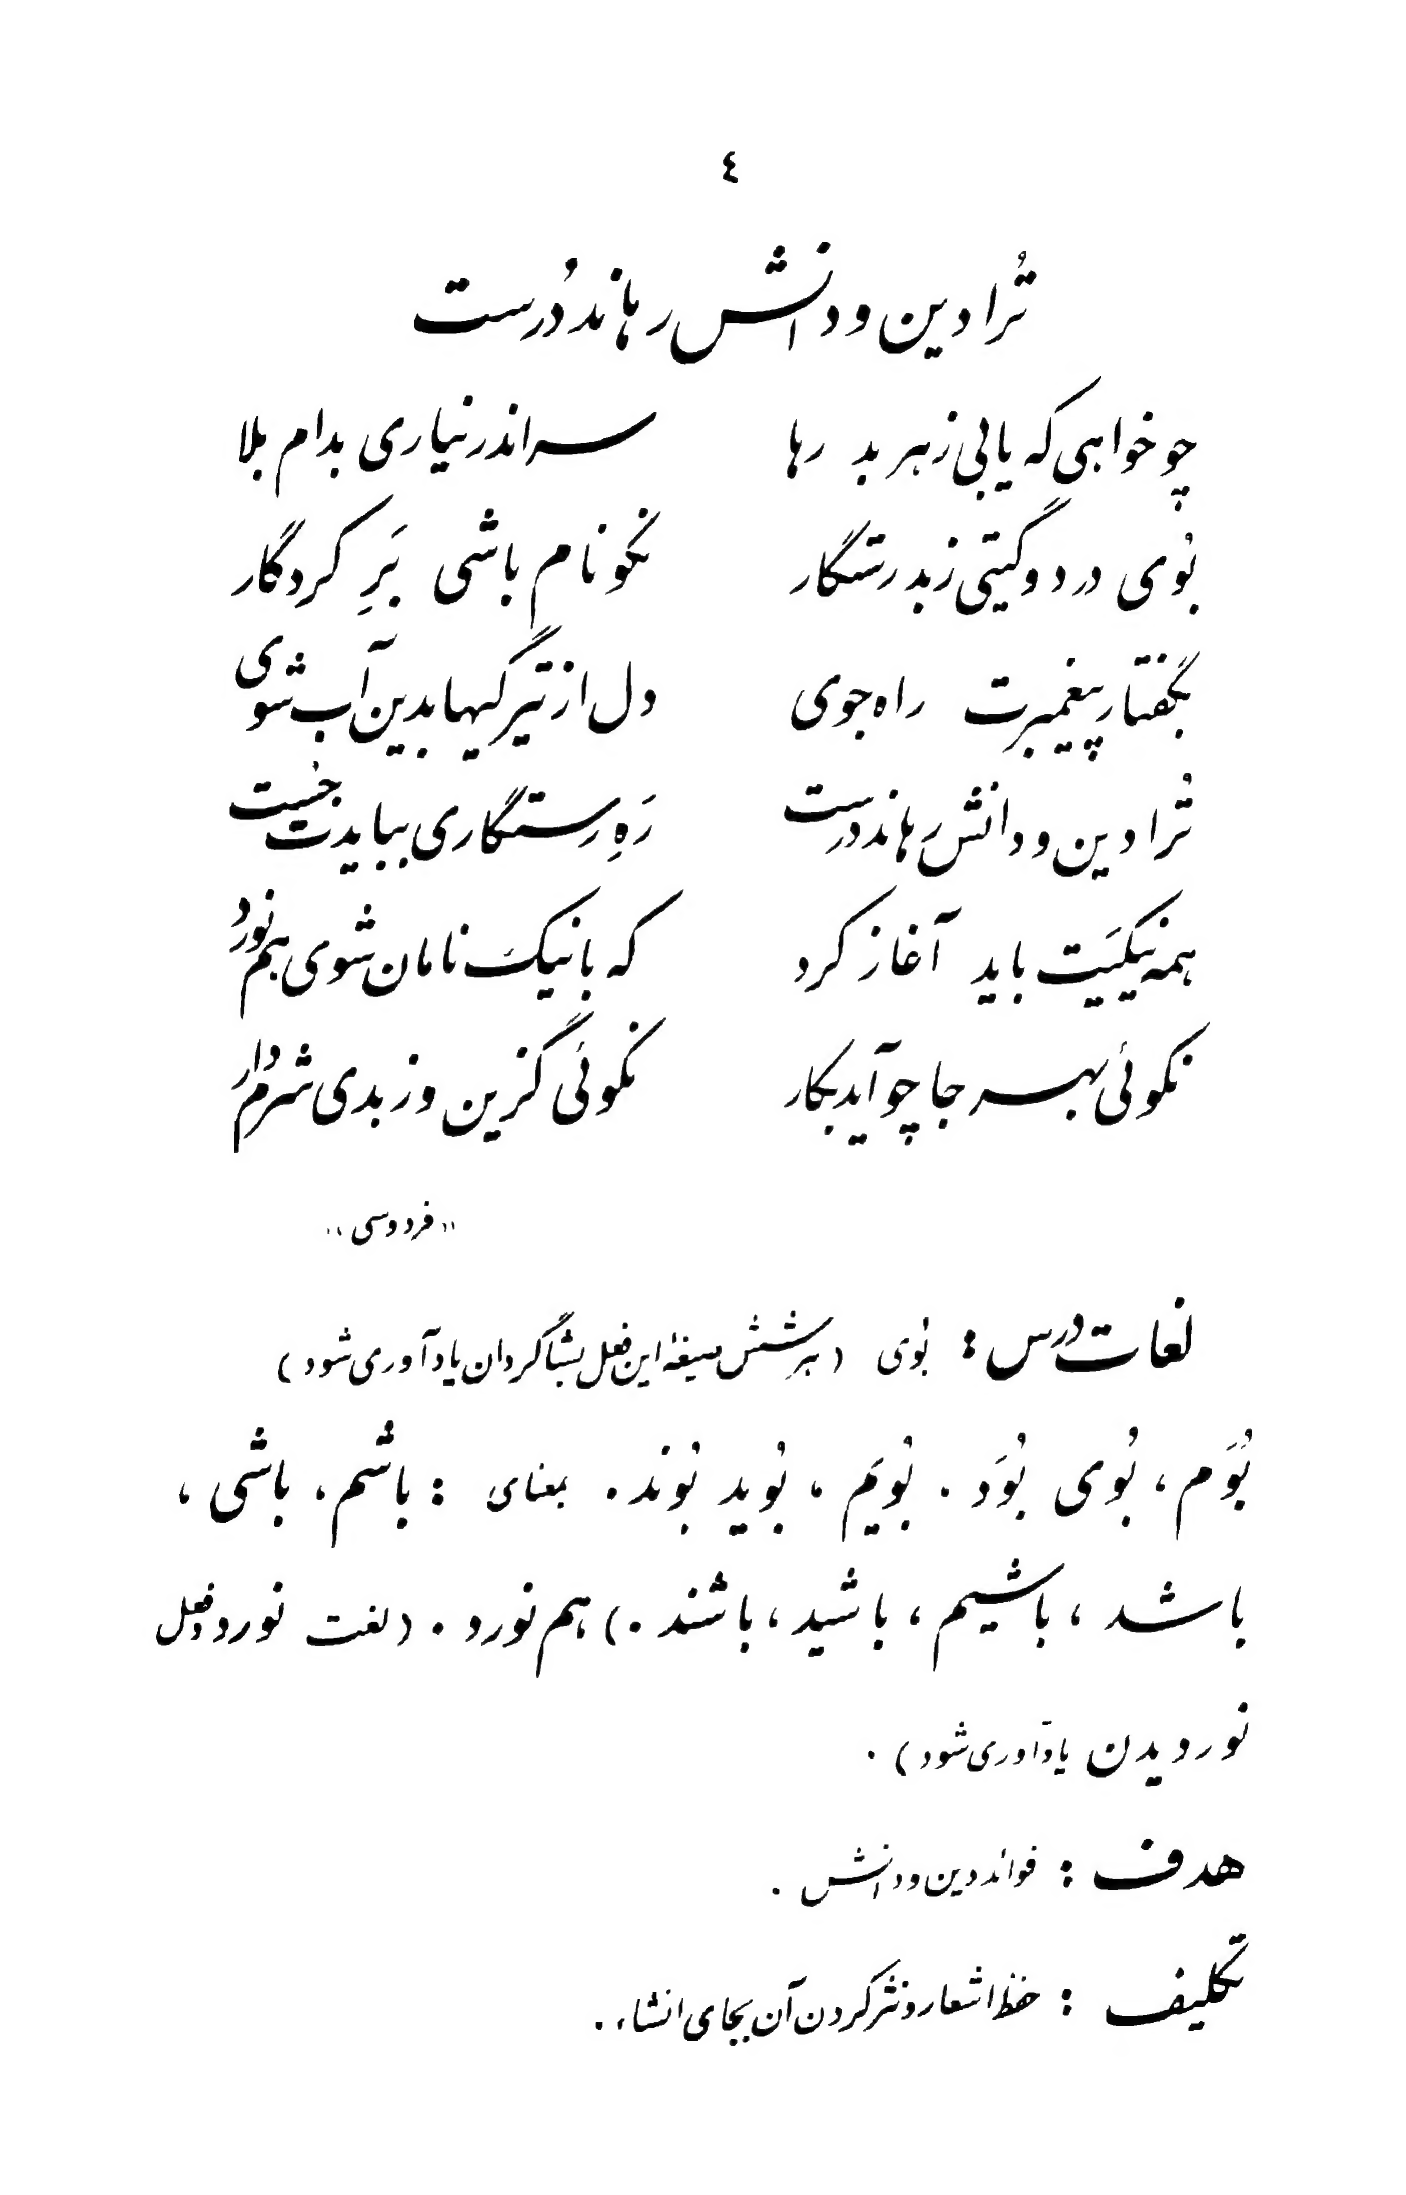 ٤
تُرا دین و دانش رهاند دُرست
چو خواهی که یابی ز هر بد رها سر اندر نیاری بدام بلا
بُوی در دو گیتی ز بد رستگار نکو نام باشی بَرِ کردگار
بگفتار پیغمبرت راه جوی دل از تیرگیها بدین آب شوی
تُرا دین و دانش رهاند درست رَهِ رستگاری ببایدت جُست
همه نیکیَت باید آغاز کرد که با نیک نامان شوی هم نورد
نکوئی بهر جا چو آید بکار نکوئی گزین وز بدی شرم دار
"فردوسی"
لغات درس: بُوی (هر شش صیغهٔ این فعل بشاگردان یادآوری شود)
بُوَم، بُوی بُوَد. بُویَم، بُوید بُوند. بمعنای : باشم، باشی،
باشد، باشیم، باشید، باشند.) هم نورد. (لغت نورد و فعل
نوردیدن یادآوری شود).
هدف : فوائد دین و دانش.
تکلیف : حفظ اشعار و نثر کردن آن بجای انشاء.